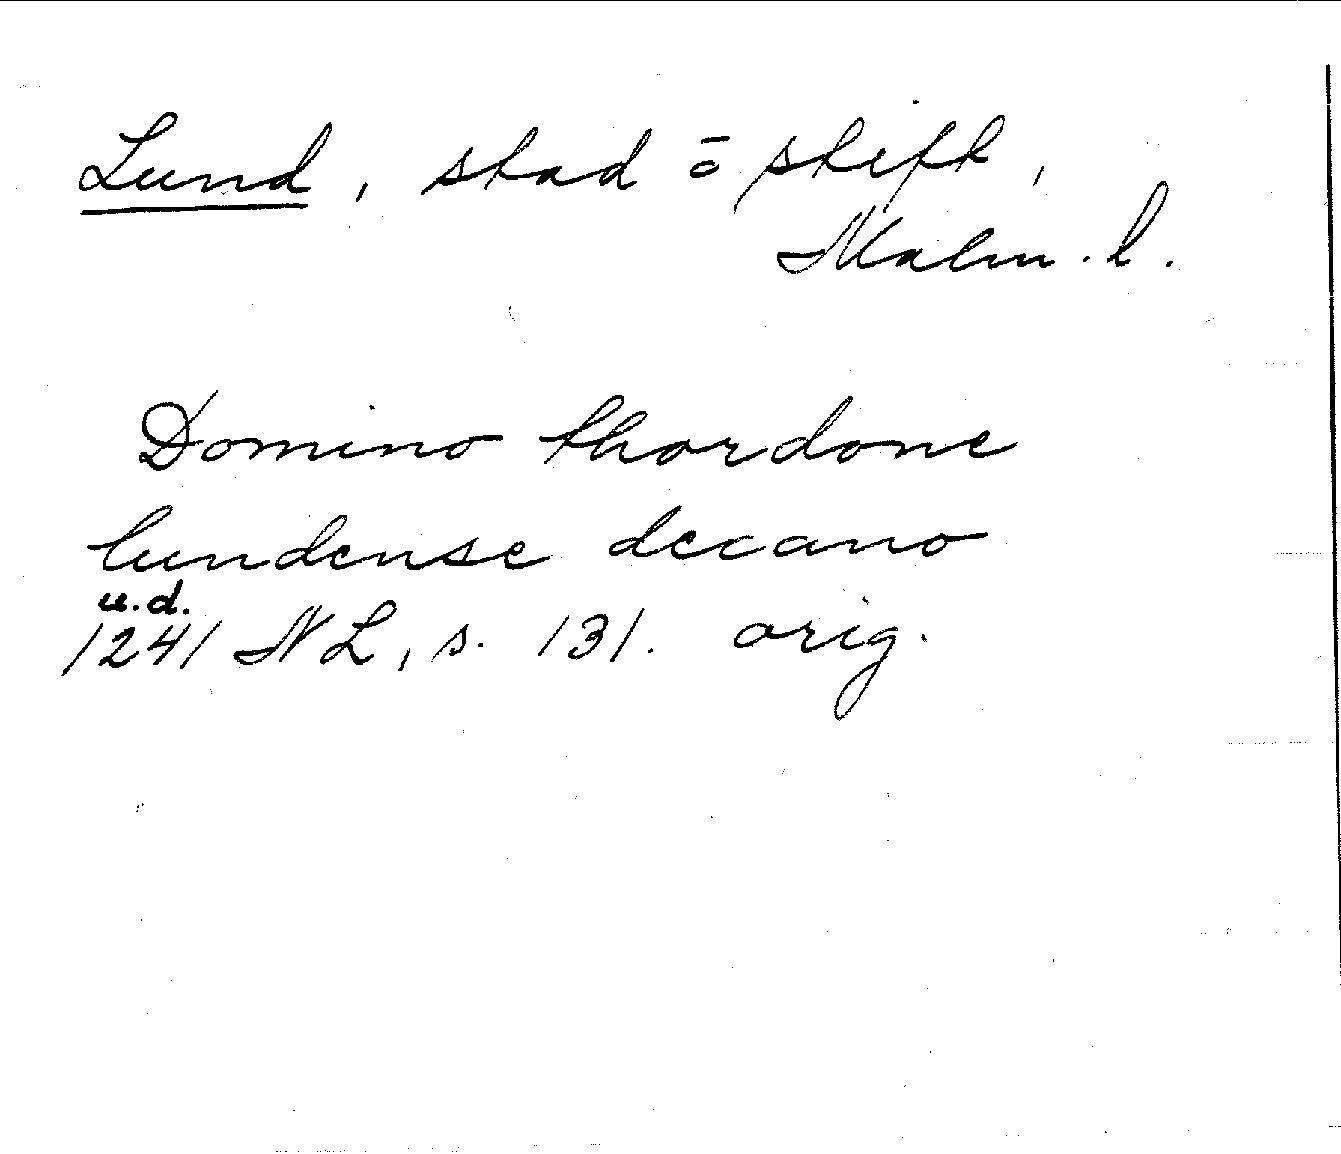 Lund, stad o stift,
Malm. l.
Domino thordone
lundense decano
u.d.
1241 NL, s. 131. orig.